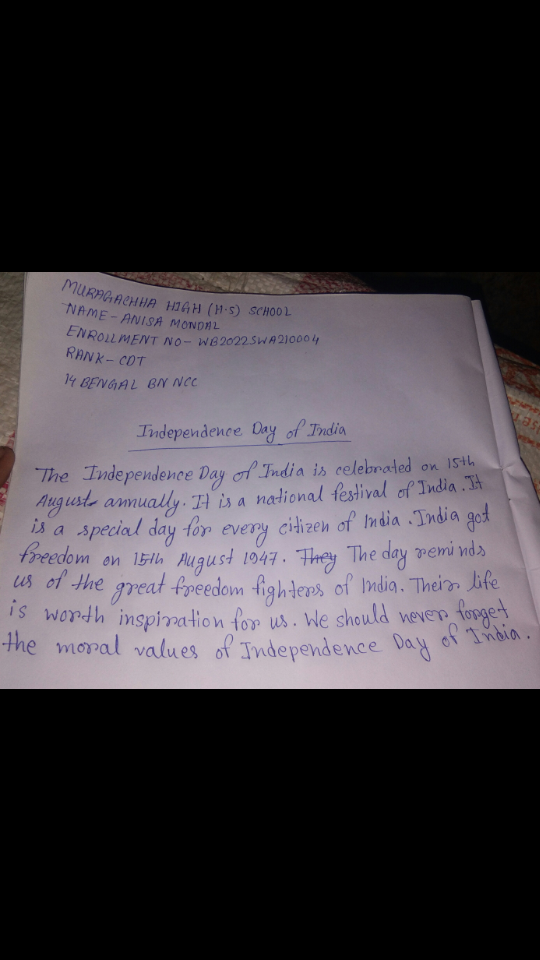 MURAGACHHA HIGH (H-S) SCHOOL
NAME- ANISA MONDAL
ENROLLMENT NO- WB2022SWA210004
RANK- CDT
14 BENGAL BN NCC
Independence Day of India
The Independence Day of India is celebrated on 15th
August annually. It is a national festival of India. It
is a special day for every citizen of India. India got
freedom on 15th August 1947. They The day reminds
us of the great freedom fighters of India. Their life
is worth inspiration for us. We should never forget
the moral values of Independence Day of India.